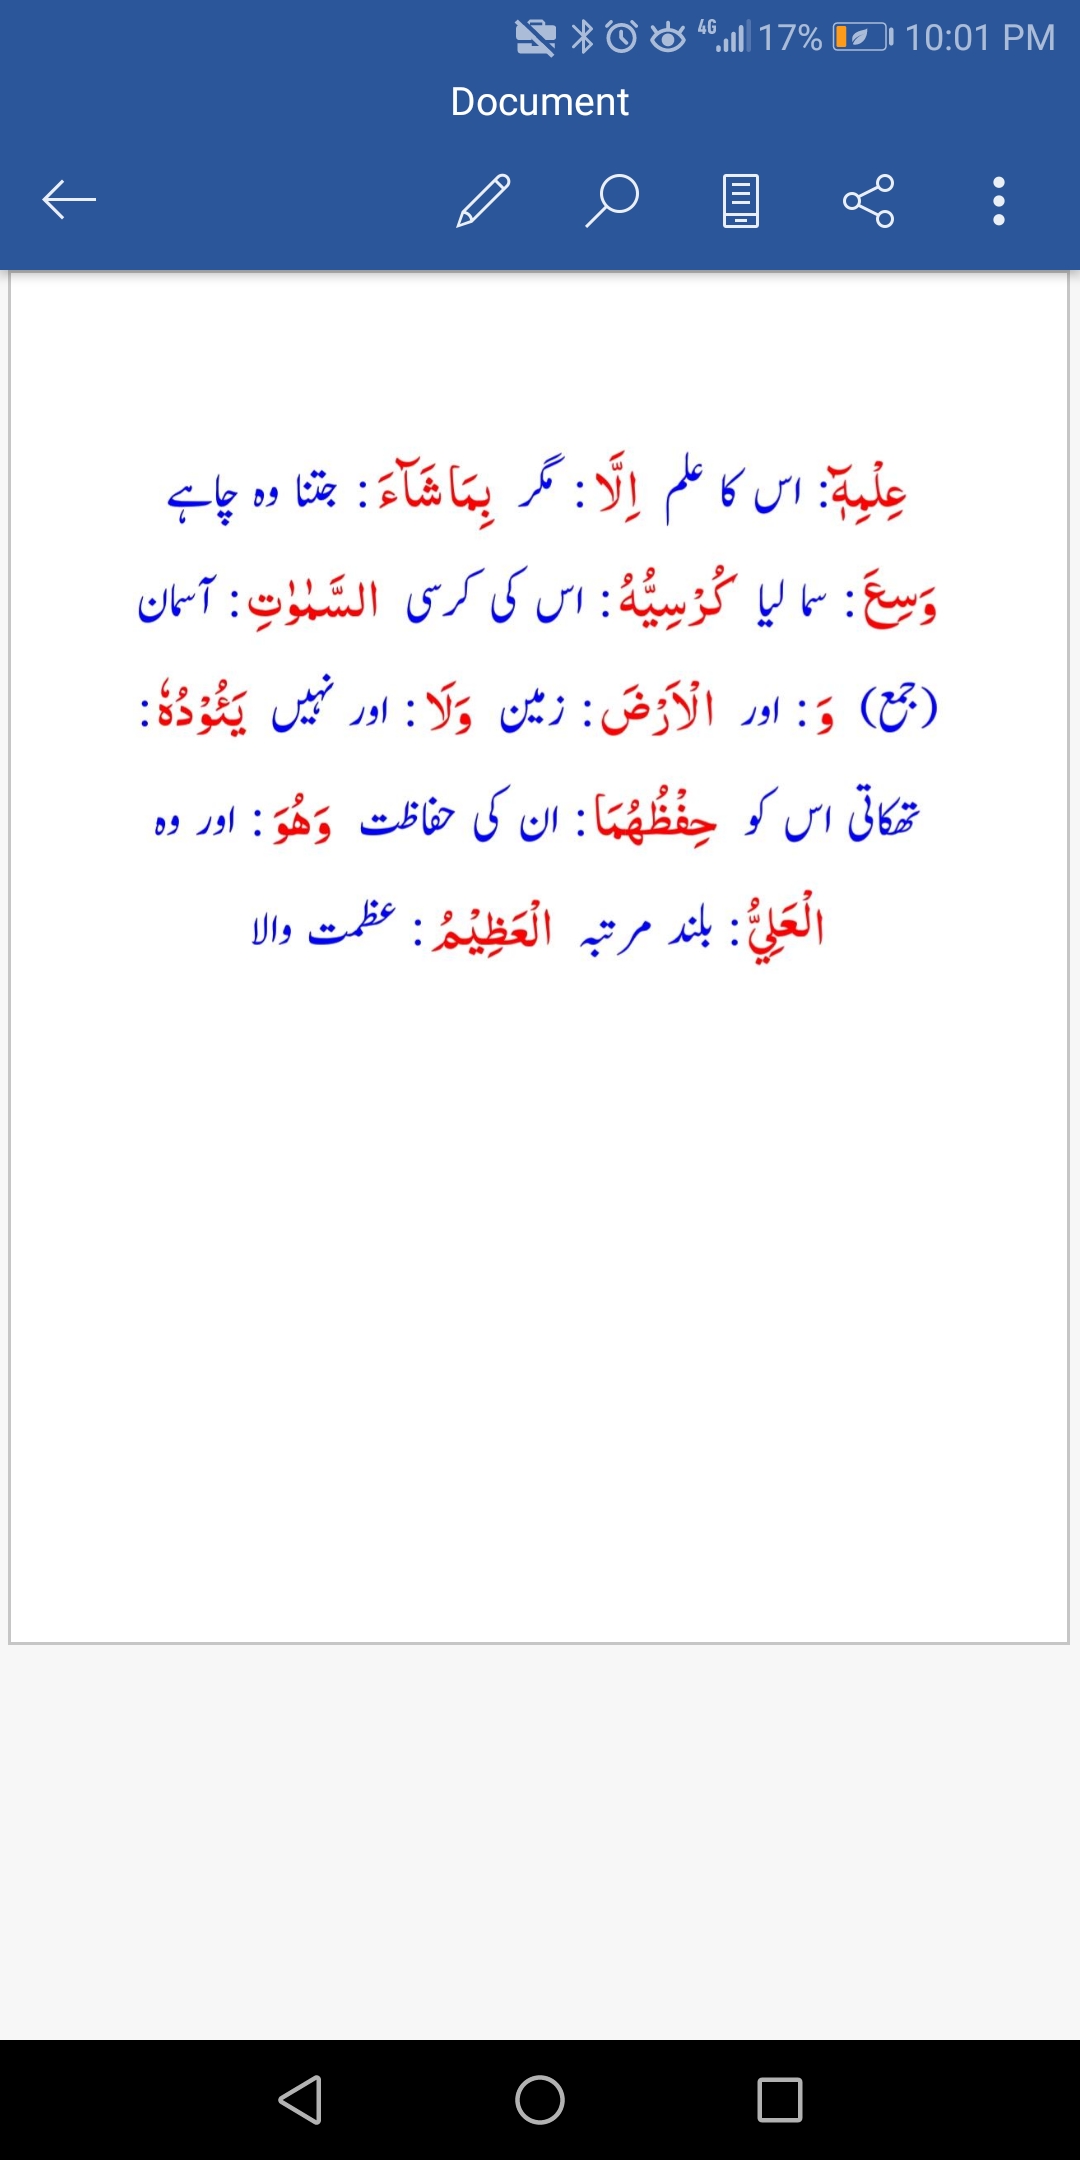 4G 17% 10:01 PM
Document
عِلْمِهٖٓ: اس کا علم اِلَّا : مگر بِمَا شَآءَ : جتنا وہ چاہے
وَسِعَ : سما لیا كُرْسِيُّهُ : اس کی کرسی السَّمٰوٰتِ : آسمان
(جمع) وَ : اور الْاَرْضَ : زمین وَلَا : اور نہیں يَئُوْدُهٗ :
تھکاتی اس کو حِفْظُهُمَا : ان کی حفاظت وَهُوَ : اور وہ
الْعَلِيُّ : بلند مرتبہ الْعَظِيْمُ : عظمت والا